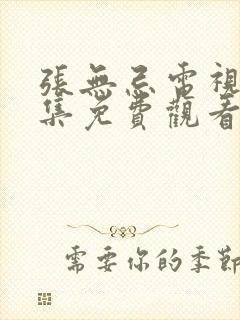 張無忌電視
集免費觀看
需要你的季節